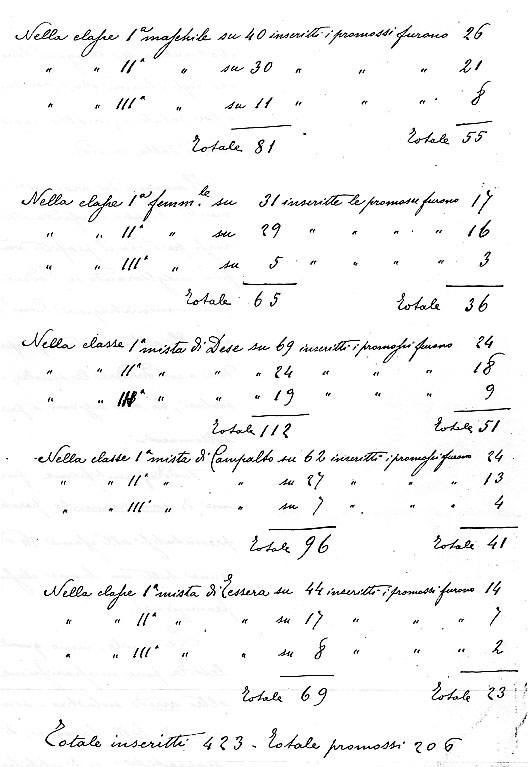 Nella classe 1ª maschile su 40 inscritti i promossi furono 26
" " IIª " su 30 " " " 21
" " IIIª " su 11 " " " 8
Totale 81 Totale 55
Nella classe 1ª femm.le su 31 inscritte le promosse furono 17
" " IIª " su 29 " " " " 16
" " IIIª " su 5 " " " " 3
Totale 65 Totale 36
Nella classe 1ª mista di Dese su 69 inscritti i promossi furono 24
" " IIª " " " 24 " " " 18
" " IIIª " " " 19 " " " 9
Totale 112 Totale 51
Nella classe 1ª mista di Campalto su 62 inscritti i promossi furono 24
" " IIª " " su 27 " " " 13
" " IIIª " " su 7 " " " 4
Totale 96 Totale 41
Nella classe 1ª mista di Tessera su 44 inscritti i promossi furono 14
" " IIª " " su 17 " " " 7
" " IIIª " " su 8 " " " 2
Totale 69 Totale 23
Totale inscritti 423 - Totale promossi 206